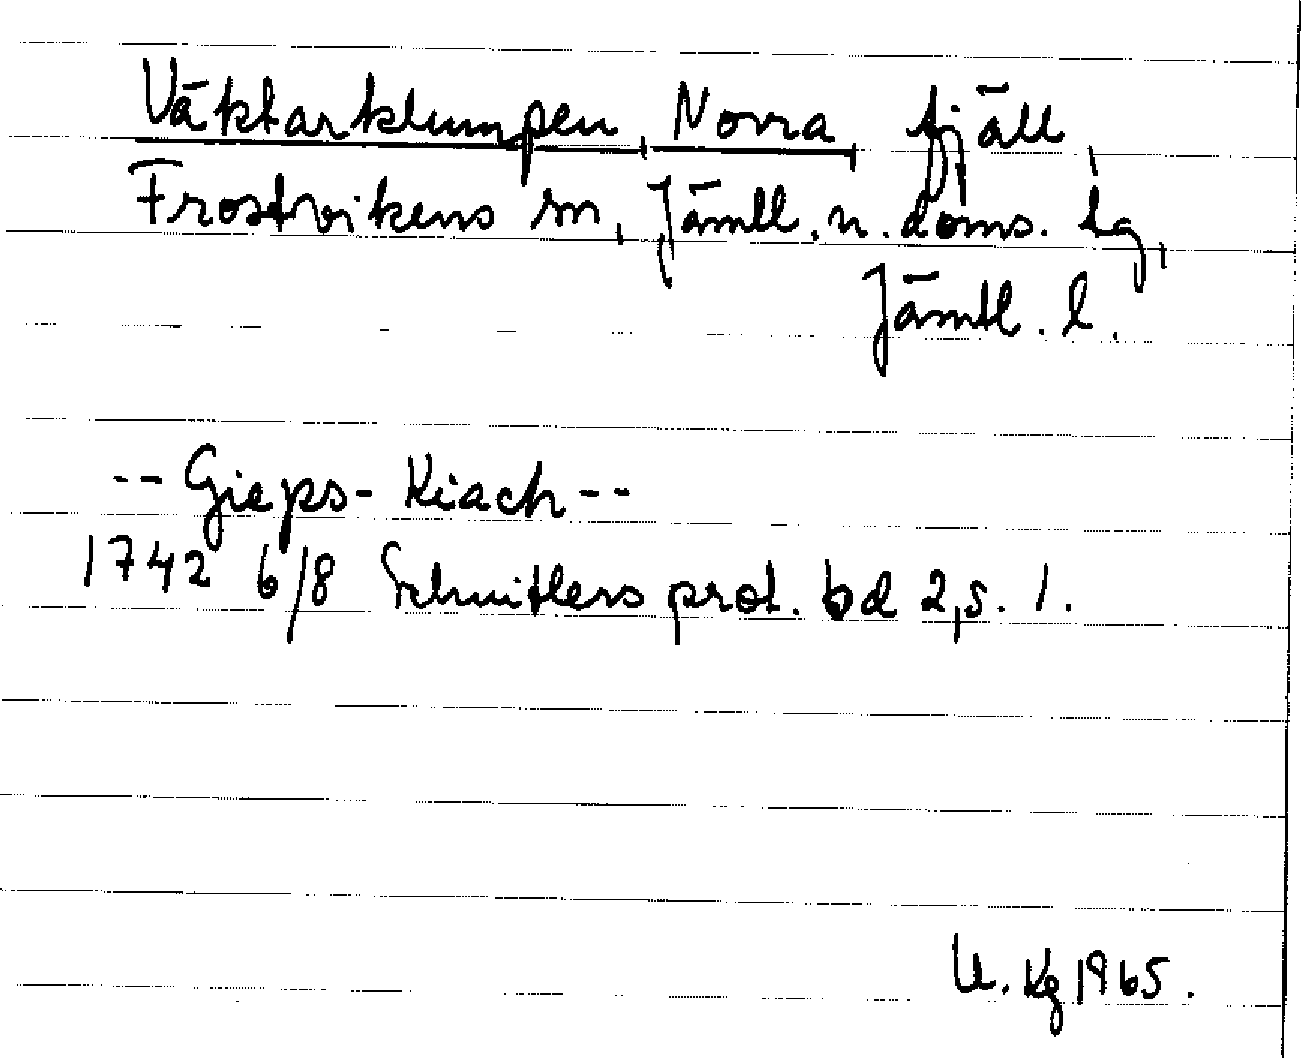 Väktarklumpen, Norra, fjäll,
Frostvikens sn, Jämtl. n. doms. lg,
Jämtl. l.
-- Gieps- Kiach --
1742 6/8 Schnitlers prot. bd 2, s. 1.
U. Kg 1965.